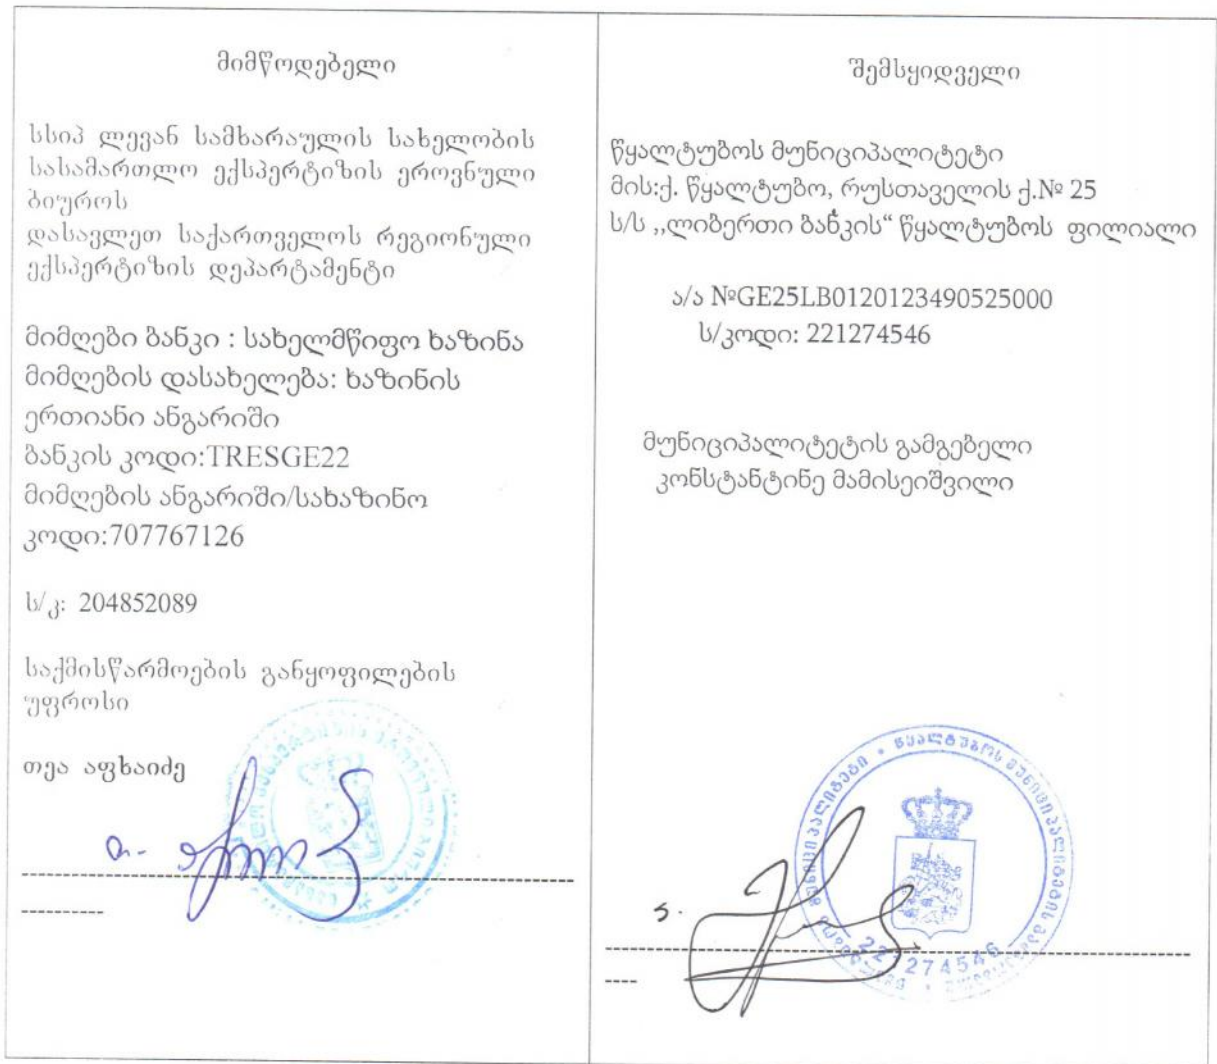 მიმწოდებელი
სსიპ ლევან სამხარაულის სახელობის
სასამართლო ექსპერტიზის ეროვნული
ბიუროს
დასავლეთ საქართველოს რეგიონული
ექსპერტიზის დეპარტამენტი
მიმღები ბანკი : სახელმწიფო ხაზინა
მიმღების დასახელება: ხაზინის
ერთიანი ანგარიში
ბანკის კოდი:TRESGE22
მიმღების ანგარიში/სახაზინო
კოდი:707767126
ს/კ: 204852089
საქმისწარმოების განყოფილების
უფროსი
თეა აფხაიძე
შემსყიდველი
წყალტუბოს მუნიციპალიტეტი
მის:ქ. წყალტუბო, რუსთაველის ქ.№ 25
ს/ს ,,ლიბერთი ბანკის“ წყალტუბოს ფილიალი
ა/ა №GE25LB0120123490525000
ს/კოდი: 221274546
მუნიციპალიტეტის გამგებელი
კონსტანტინე მამისეიშვილი
წყალტუბოს მუნიციპალიტეტის
221274546